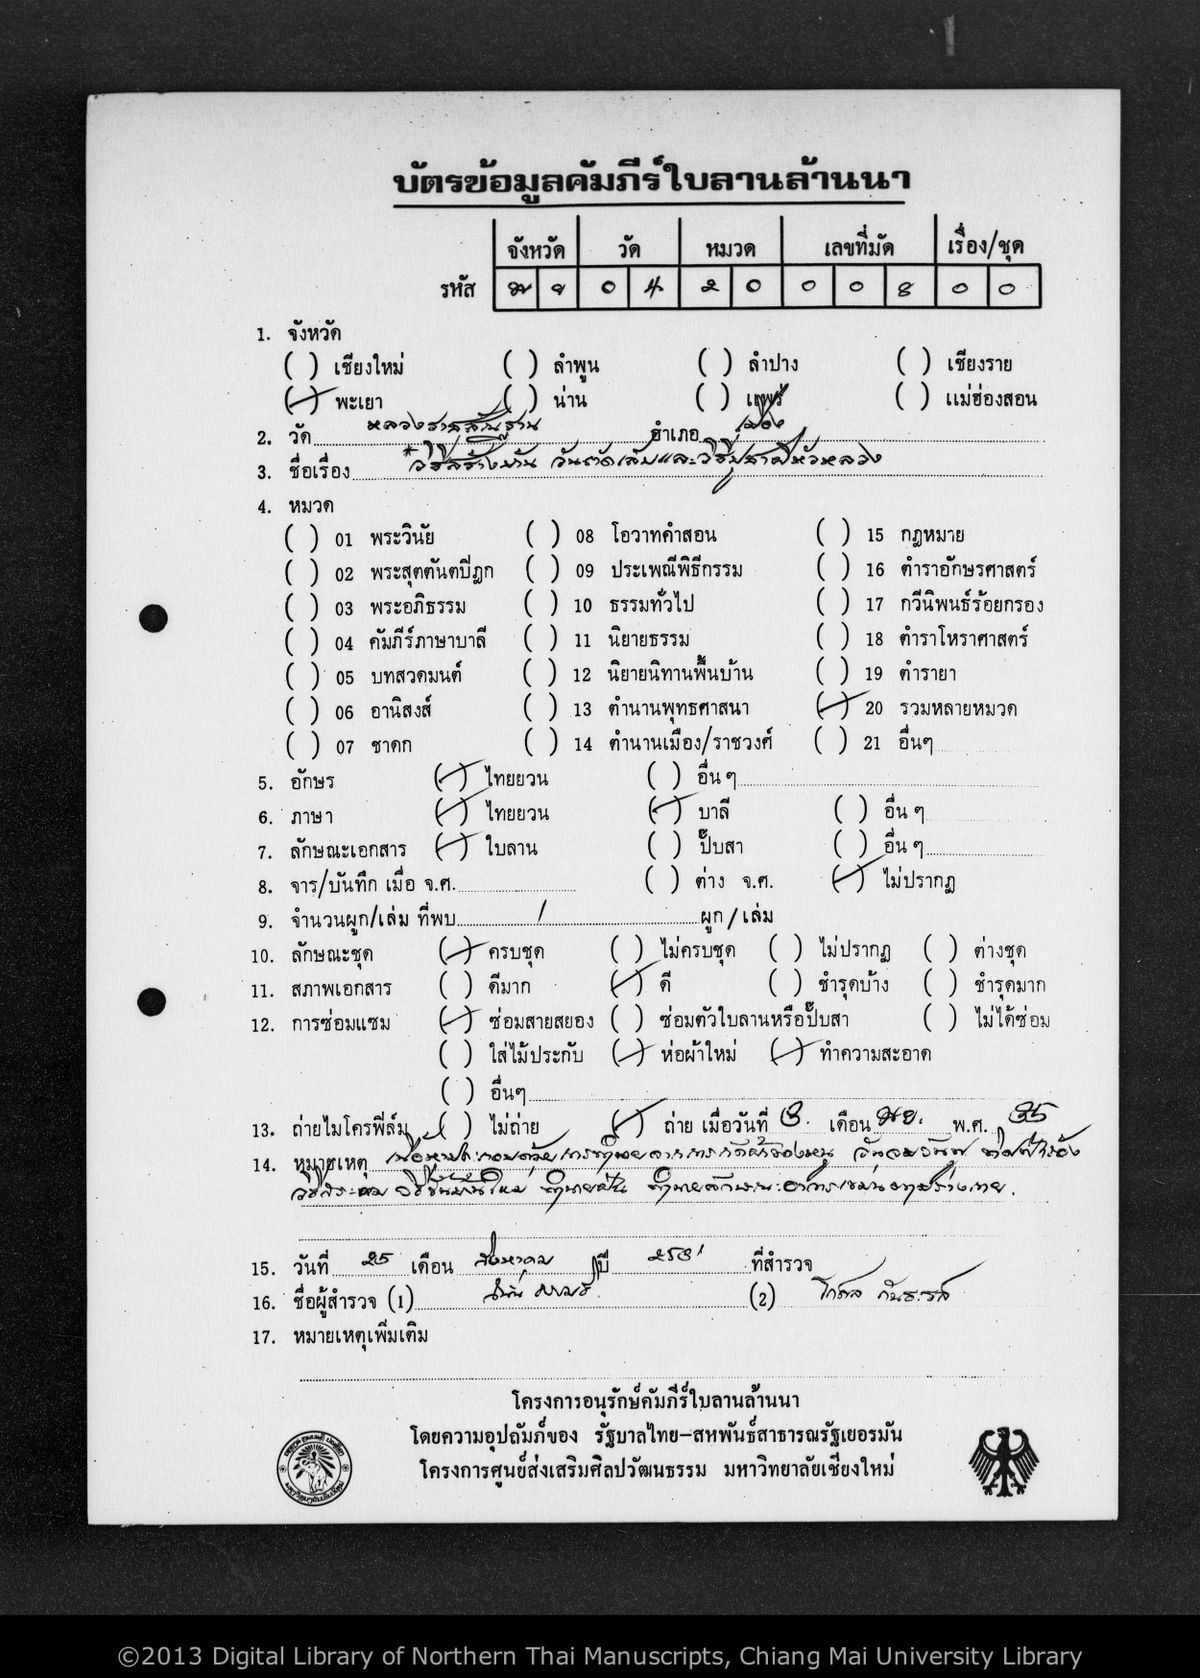 บัตรข้อมูลคัมภีร์ใบลานล้านนา
จังหวัด วัด หมวด เลขที่มัด เรื่อง/ชุด
รหัส พ ย 0 4 2 0 0 0 8 0 0
1. จังหวัด
( ) เชียงใหม่ ( ) ลำพูน ( ) ลำปาง ( ) เชียงราย
(✓) พะเยา ( ) น่าน ( ) แพร่ ( ) แม่ฮ่องสอน
2. วัด หลวงราชสัณฐาน อำเภอ เมือง
3. ชื่อเรื่อง *วิธีสร้างบ้าน วันตัดเล็บและวิธีบูชาผีหัวหลวง
4. หมวด
( ) 01 พระวินัย ( ) 08 โอวาทคำสอน ( ) 15 กฎหมาย
( ) 02 พระสุตตันตปิฎก ( ) 09 ประเพณีพิธีกรรม ( ) 16 ตำราอักษรศาสตร์
( ) 03 พระอภิธรรม ( ) 10 ธรรมทั่วไป ( ) 17 กวีนิพนธ์ร้อยกรอง
( ) 04 คัมภีร์ภาษาบาลี ( ) 11 นิยายธรรม ( ) 18 ตำราโหราศาสตร์
( ) 05 บทสวดมนต์ ( ) 12 นิยายนิทานพื้นบ้าน ( ) 19 ตำรายา
( ) 06 อานิสงส์ ( ) 13 ตำนานพุทธศาสนา (✓) 20 รวมหลายหมวด
( ) 07 ชาดก ( ) 14 ตำนานเมือง/ราชวงศ์ ( ) 21 อื่นๆ
5. อักษร (✓) ไทยยวน ( ) อื่น ๆ
6. ภาษา (✓) ไทยยวน (✓) บาลี ( ) อื่น ๆ
7. ลักษณะเอกสาร (✓) ใบลาน ( ) ปั๊บสา ( ) อื่น ๆ
8. จาร/บันทึก เมื่อ จ.ศ. ( ) ต่าง จ.ศ. (✓) ไม่ปรากฏ
9. จำนวนผูก/เล่ม ที่พบ 1 ผูก/เล่ม
10. ลักษณะชุด (✓) ครบชุด ( ) ไม่ครบชุด ( ) ไม่ปรากฏ ( ) ต่างชุด
11. สภาพเอกสาร ( ) ดีมาก (✓) ดี ( ) ชำรุดบ้าง ( ) ชำรุดมาก
12. การซ่อมแซม (✓) ซ่อมสายสยอง ( ) ซ่อมตัวใบลานหรือปั๊บสา ( ) ไม่ได้ซ่อม
( ) ใส่ไม้ประกับ (✓) ห่อผ้าใหม่ (✓) ทำความสะอาด
( ) อื่นๆ
13. ถ่ายไมโครฟิล์ม ( ) ไม่ถ่าย (✓) ถ่าย เมื่อวันที่ 3 เดือน พย. พ.ศ. 35
14. หมายเหตุ เนื้อหาประกอบด้วยการทำนายจากการกัดผ้าของหนู
ขึ้นบ้านใหม่ ทำนายฝัน ร่างกาย.
15. วันที่ 25 เดือน สิงหาคม ปี 2531 ที่สำรวจ
16. ชื่อผู้สำรวจ (1) (2)
17. หมายเหตุเพิ่มเติม
โครงการอนุรักษ์คัมภีร์ใบลานล้านนา
โดยความอุปถัมภ์ของ รัฐบาลไทย-สหพันธ์สาธารณรัฐเยอรมัน
โครงการศูนย์ส่งเสริมศิลปวัฒนธรรม มหาวิทยาลัยเชียงใหม่
©2013 Digital Library of Northern Thai Manuscripts, Chiang Mai University Library